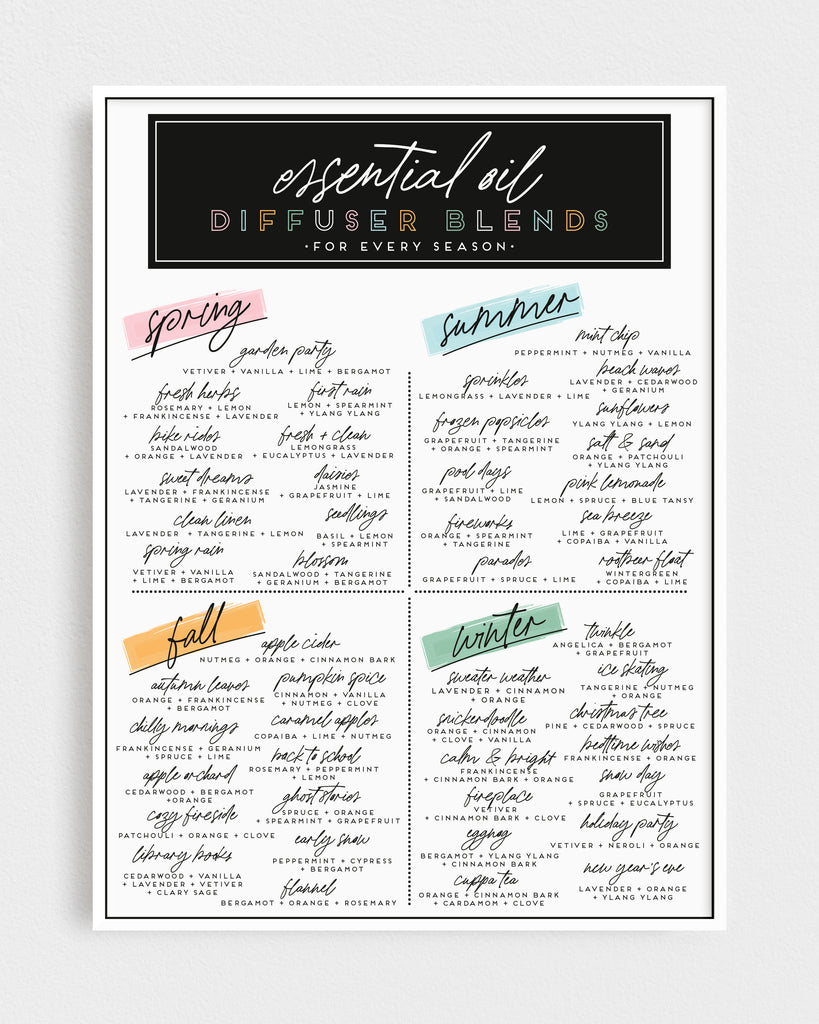 essential oil
DIFFUSER BLENDS
·FOR EVERY SEASON·
spring
garden party
VETIVER + VANILLA + LIME + BERGAMOT
fresh herbs
ROSEMARY + LEMON
+ FRANKINCENSE + LAVENDER
first rain
LEMON + SPEARMINT
+ YLANG YLANG
bike rides
SANDALWOOD
+ ORANGE + LAVENDER
fresh + clean
LEMONGRASS
+ EUCALYPTUS + LAVENDER
sweet dreams
LAVENDER + FRANKINCENSE
+ TANGERINE + GERANIUM
daisies
JASMINE
+ GRAPEFRUIT + LIME
clean linen
LAVENDER + TANGERINE + LEMON
seedlings
BASIL + LEMON
+ SPEARMINT
spring rain
VETIVER + VANILLA
+ LIME + BERGAMOT
blossom
SANDALWOOD + TANGERINE
+ GERANIUM + BERGAMOT
summer
mint chip
PEPPERMINT + NUTMEG + VANILLA
sprinkles
LEMONGRASS + LAVENDER + LIME
beach waves
LAVENDER + CEDARWOOD
+ GERANIUM
frozen popsicles
GRAPEFRUIT + TANGERINE
+ ORANGE + SPEARMINT
sunflowers
YLANG YLANG + LEMON
salt & sand
ORANGE + PATCHOULI
+ YLANG YLANG
pool days
GRAPEFRUIT + LIME
+ SANDALWOOD
pink lemonade
LEMON + SPRUCE + BLUE TANSY
fireworks
ORANGE + SPEARMINT
+ TANGERINE
sea breeze
LIME + GRAPEFRUIT
+ COPAIBA + VANILLA
parades
GRAPEFRUIT + SPRUCE + LIME
rootbeer float
WINTERGREEN
+ COPAIBA + LIME
fall
apple cider
NUTMEG + ORANGE + CINNAMON BARK
autumn leaves
ORANGE + FRANKINCENSE
+ BERGAMOT
pumpkin spice
CINNAMON + VANILLA
+ NUTMEG + CLOVE
chilly mornings
FRANKINCENSE + GERANIUM
+ SPRUCE + LIME
caramel apples
COPAIBA + LIME + NUTMEG
back to school
ROSEMARY + PEPPERMINT
+ LEMON
apple orchard
CEDARWOOD + BERGAMOT
+ORANGE
ghost stories
SPRUCE + ORANGE
+ SPEARMINT + GRAPEFRUIT
cozy fireside
PATCHOULI + ORANGE + CLOVE
early snow
PEPPERMINT + CYPRESS
+ BERGAMOT
library books
CEDARWOOD + VANILLA
+ LAVENDER + VETIVER
+ CLARY SAGE
flannel
BERGAMOT + ORANGE + ROSEMARY
winter
twinkle
ANGELICA + BERGAMOT
+ GRAPEFRUIT
sweater weather
LAVENDER + CINNAMON
+ ORANGE
ice skating
TANGERINE + NUTMEG
+ ORANGE
snickerdoodle
ORANGE + CINNAMON
+ CLOVE + VANILLA
christmas tree
PINE + CEDARWOOD + SPRUCE
calm & bright
FRANKINCENSE
+ CINNAMON BARK + ORANGE
bedtime wishes
FRANKINCENSE + ORANGE
snow day
GRAPEFRUIT
+ SPRUCE + EUCALYPTUS
fireplace
VETIVER
+ CINNAMON BARK + CLOVE
holiday party
VETIVER + NEROLI + ORANGE
eggnog
BERGAMOT + YLANG YLANG
+ CINNAMON BARK
cuppa tea
ORANGE + CINNAMON BARK
+ CARDAMOM + CLOVE
new year's eve
LAVENDER + ORANGE
+ YLANG YLANG